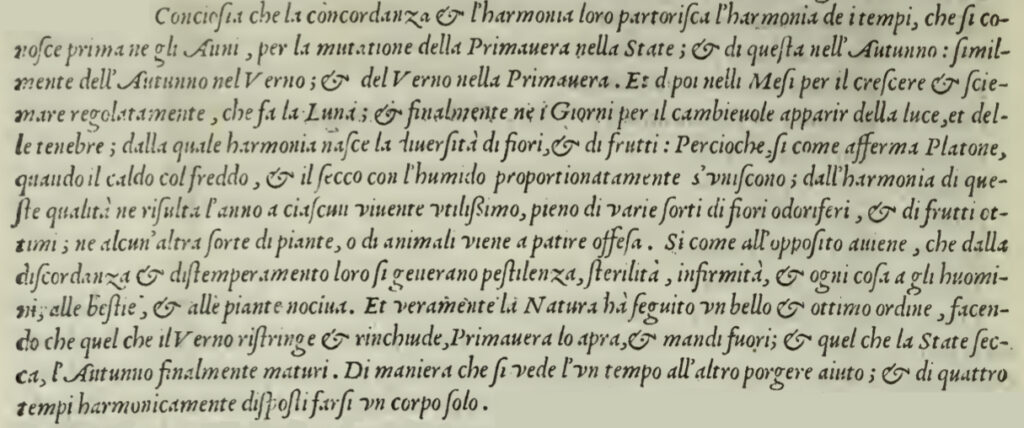 Conciosia che la concordanza & l'harmonia loro partorisca l'harmonia de i tempi, che si co-
nosce prima ne gli Anni, per la mutatione della Primauera nella State; & di questa nell'Autunno: simil-
mente dell'Autunno nel Verno; & del Verno nella Primauera. Et dpoi nelli Mesi per il crescere & scie-
mare regolatamente, che fa la Luna; & finalmente ne i Giorni per il cambieuole apparir della luce, et del-
le tenebre; dalla quale harmonia nasce la diuersità di fiori, & di frutti: Percioche, si come afferma Platone,
quando il caldo col freddo, & il secco con l'humido proportionatamente s'vniscono; dall'harmonia di que-
ste qualità ne risulta l'anno a ciascun viuente vtilißimo, pieno di varie sorti di fiori odoriferi, & di frutti ot-
timi; ne alcun'altra sorte di piante, o di animali viene a patire offesa. Si come all'opposito auiene, che dalla
discordanza & distemperamento loro si generano pestilenza, sterilità, infirmità, & ogni cosa a gli huomi-
ni, alle bestie, & alle piante nociua. Et veramente la Natura hà seguito vn bello & ottimo ordine, facen-
do che quel che il Verno ristringe & rinchiude, Primauera lo apra, & mandi fuori; & quel che la State sec-
ca, l'Autunno finalmente maturi. Di maniera che si vede l'vn tempo all'altro porgere aiuto; & di quattro
tempi harmonicamente disposti farsi vn corpo solo.